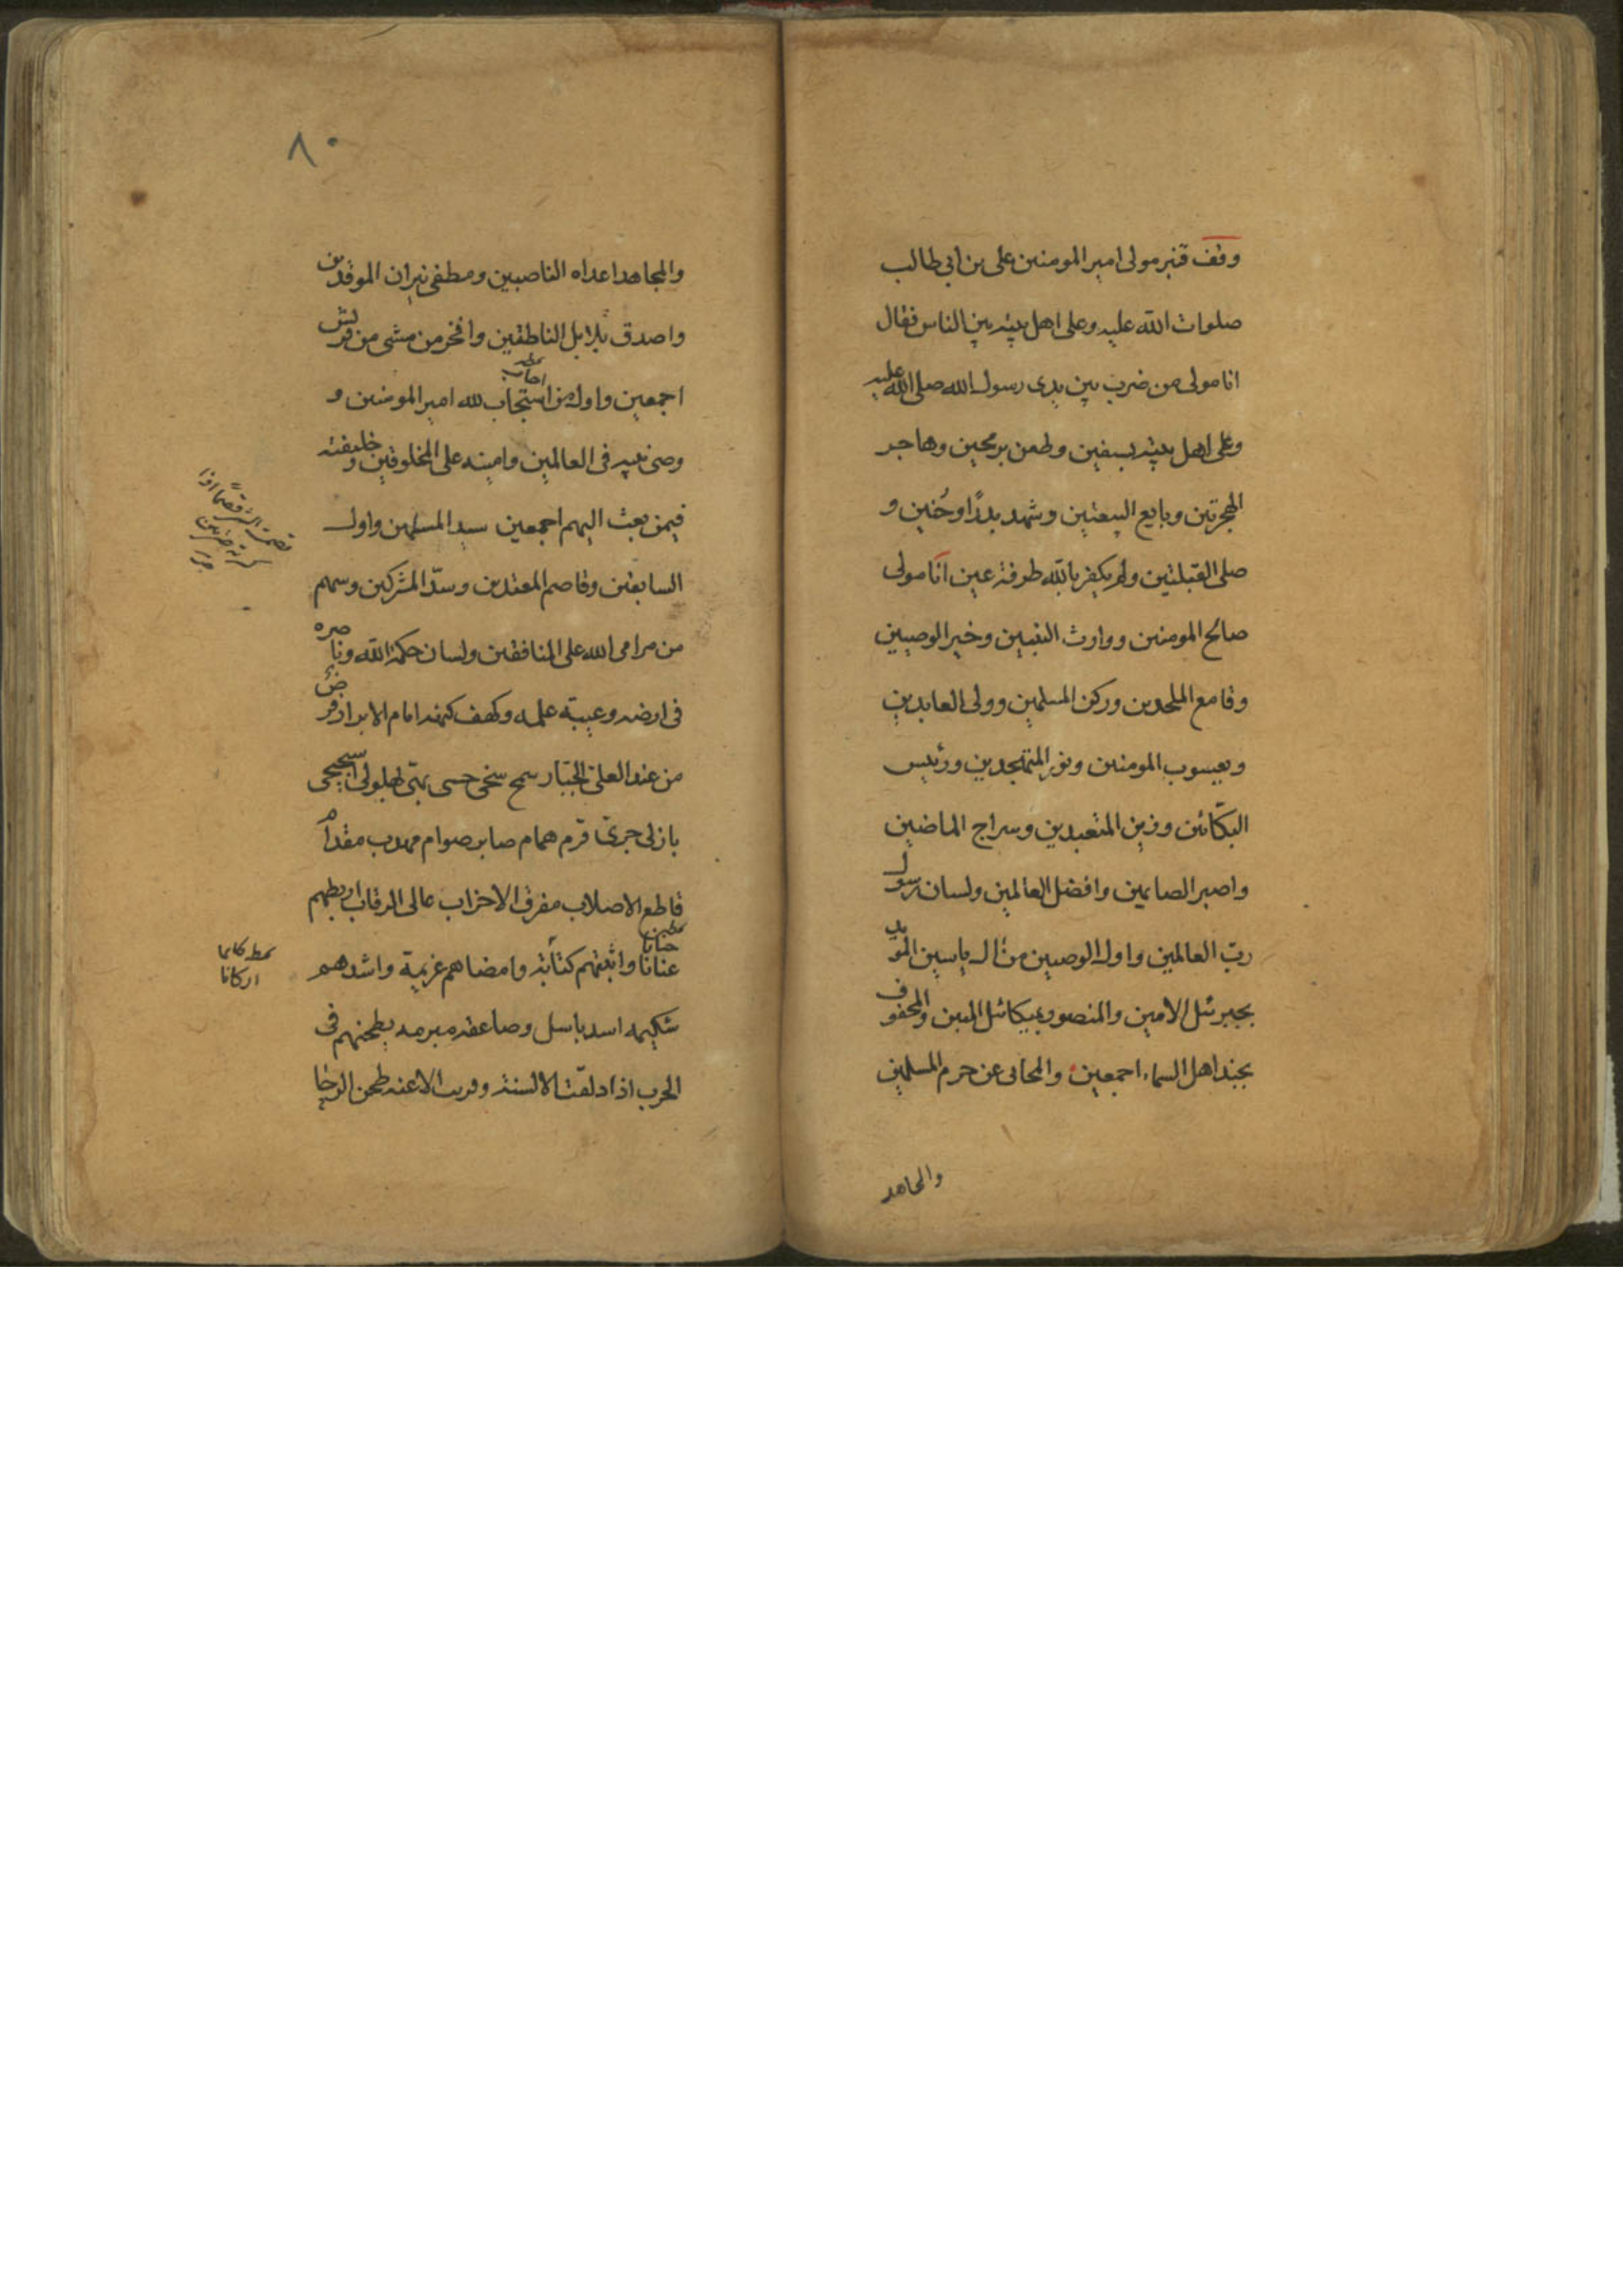 وقف قنبر مولى امير المومنين على بن ابى طالب
صلوات الله عليه وعلى اهل بيته بين الناس فقال
انا مولى من ضرب بين يدى رسول الله صلى الله عليه
وعلى اهل بيته بسيفين وطعن برمحين وهاجر
الهجرتين وبايع البيعتين وشهد بدرًا وحُنين و
صلى القبلتين ولم يكفر بالله طرفة عين انا مولى
صالح المومنين ووارث النبيين وخير الوصيين
وقامع الملحدين وركن المسلمين وولى العابدين
ويعسوب المومنين ونور المتهجدين ورئيس
البكّائين وزين المتعبدين وسراج الماضين
واصبر الصايمين وافضل العالمين ولسان رسول
ربّ العالمين واول الوصيين من ال ياسين المؤيد
بجبرئيل الامين والمنصور بميكائيل المبين والمحفوف
بجند اهل السماء اجمعين والمحامى عن حرم المسلمين
والمجاهد
٨٠
والمجاهد اعداه الناصبين ومطفى نيران الموقدين
واصدق بلابل الناطقين وافخر من مشى من قريش
اجمعين واول من استجاب لله امير المومنين و
اجاب
وصى نبيه فى العالمين وامينه على المخلوقين وخليفته
فيمن بعث اليهم اجمعين سيد المسلمين واول
السابقين وقاصم المعتدين وسدّ المشركين وسهم
من مرامى الله على المنافقين ولسان حكمة الله وناصره
فى ارضه وعيبة علمه وكهف كتبه امام الابرار
من عند العلىّ الجبّار سمح سخى حسى بهىّ بهلولى
باذلى جرىّ قرم همام صابر صوام مهدب مقدام
قاطع الاصلاب مفرق الاحزاب عالى الرقاب اربطهم
عنانا واثبتهم كتابة وامضاهم عزيمة واشدهم
جنانا
اركانا
شكيمه اسد باسل وصاعقه مبرمه يطحنهم فى
الحرب اذا دلقت الالسنة وقربت الاعنه طحن الرحا